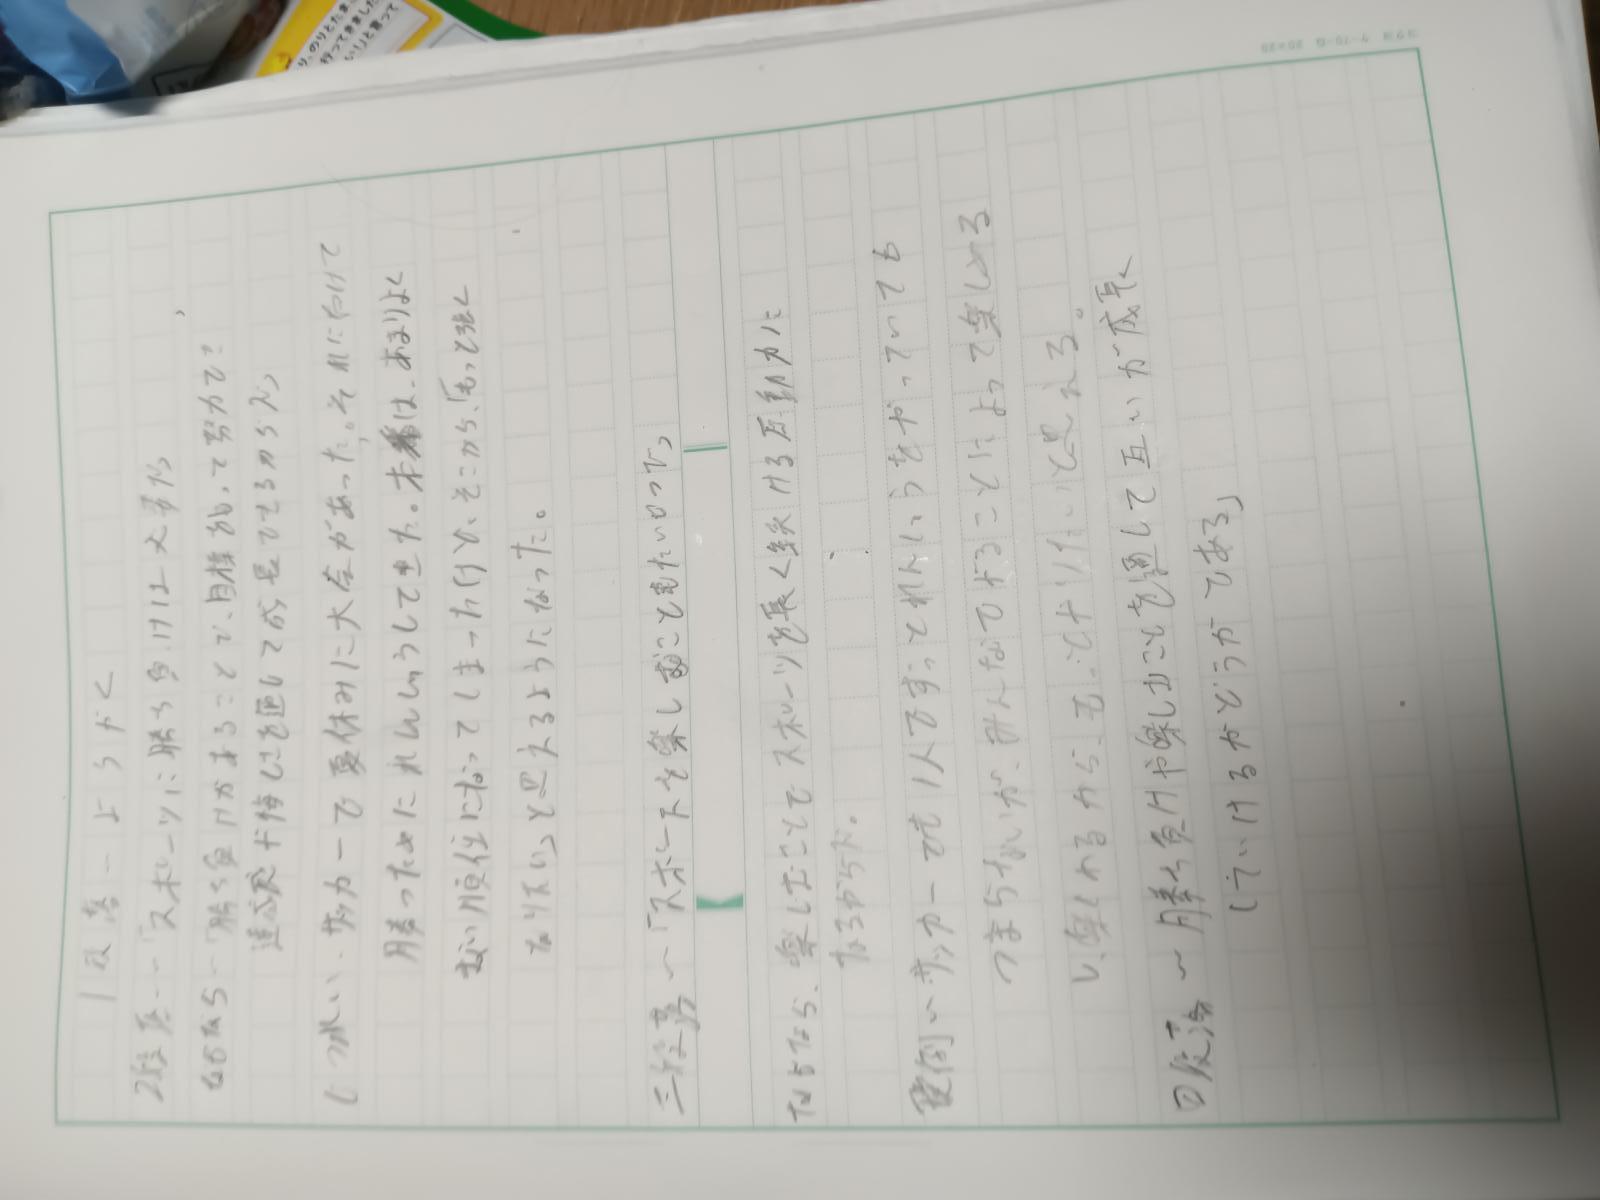 1段落 ― ようやく
2段落 ― 「スポーツに勝ち負けは大事だ」
なぜなら「勝ち負けがあることで、目標をもって努力でき
達成感や悔しさを通して成長できるから
じつれい、サッカーで夏休みに大会があった。それにむけて
勝つためにれんしゅうしてきた。本番は、あまりよく
ない順位になってしまったけど、そこから、「もっと強く
なりたい」と思えるようになった。
三段落 ― 「スポーツを楽しむこともたいせつだ」
なぜなら、楽しむことでスポーツを長く続ける原動力に
なるからだ。
実例 サッカーでも1人でずっとれんしゅうをやっていても
つまらないが、みんなでやることによって楽しめる
し、楽しめるから、もっとやりたいと思える。
四段落 ― 勝ち負けや楽しむことを通して互いが成長
していけるかどうかである」
コクヨ ケ-70 20×20
のりとたま
行ってきました